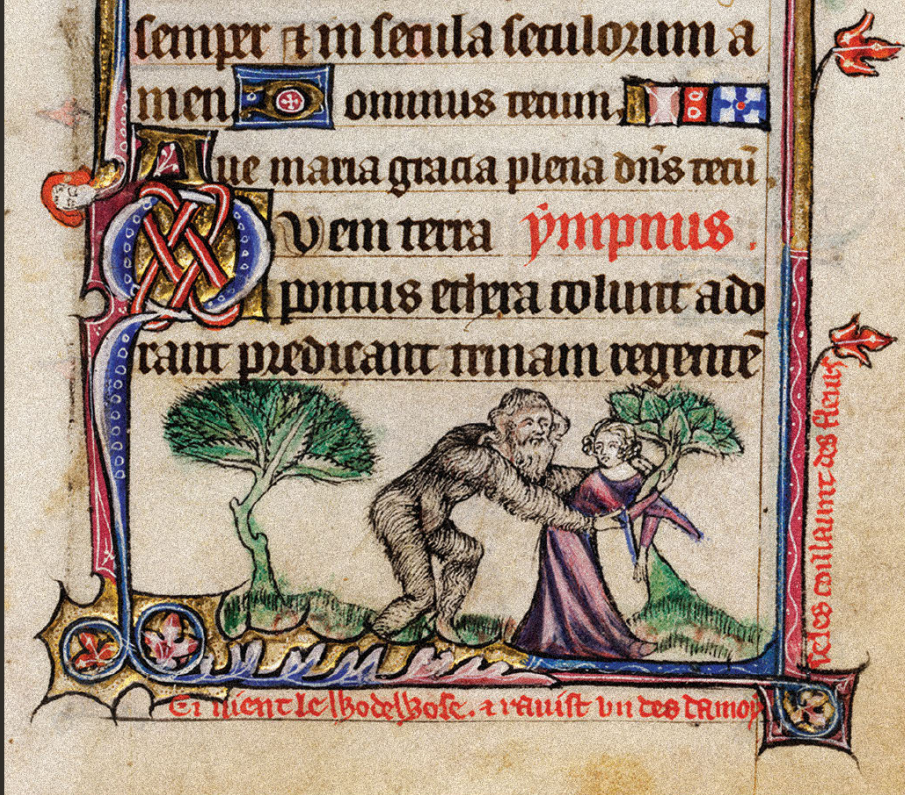 semper et in secula seculorum a
men. ominus tecum.
Aue maria gracia plena dn̄s tecū.
Quem terra ẏmpnus.
pontus ethera colunt ado
rant predicant trinam regentē
Ci uient le Wodewose. a rauist vn des damoy
seles coillaunt des fleurs